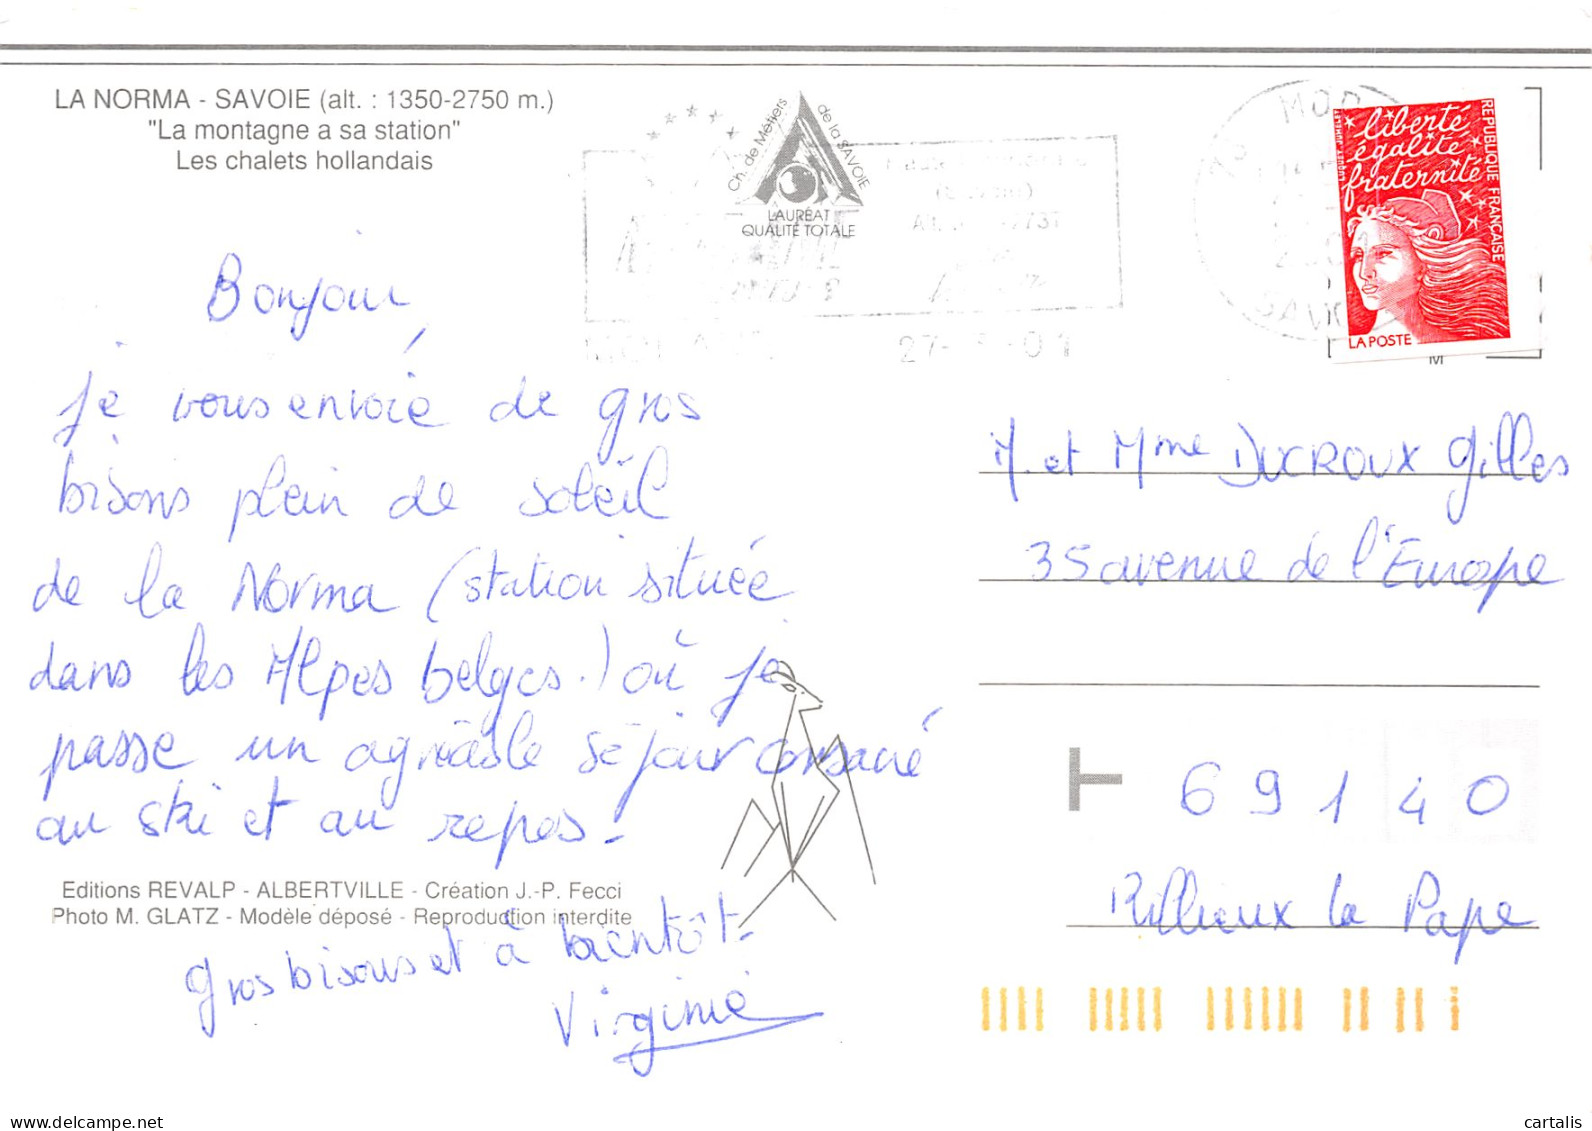 LA NORMA - SAVOIE (alt. : 1350-2750 m.)
"La montagne a sa station"
Les chalets hollandais
Ch. de Métiers de la SAVOIE
LAURÉAT
QUALITÉ TOTALE
27- -01
MOD
SAV
liberté
égalité
fraternité
RÉPUBLIQUE FRANÇAISE
LA POSTE
M
Bonjour,
je vous envoie de gros
bisons plein de soleil
de la Norma (station située
dans les Alpes belges.) où je
passe un agréable séjour consacré
au ski et au repos.
Editions REVALP - ALBERTVILLE - Création J.-P. Fecci
Photo M. GLATZ - Modèle déposé - Reproduction interdite
Gros bisous et à bientôt.
Virginie
M. et Mme DUCROUX Gilles
35 avenue de l'Europe
69140
Rillieux la Pape
delcampe.net
cartalis